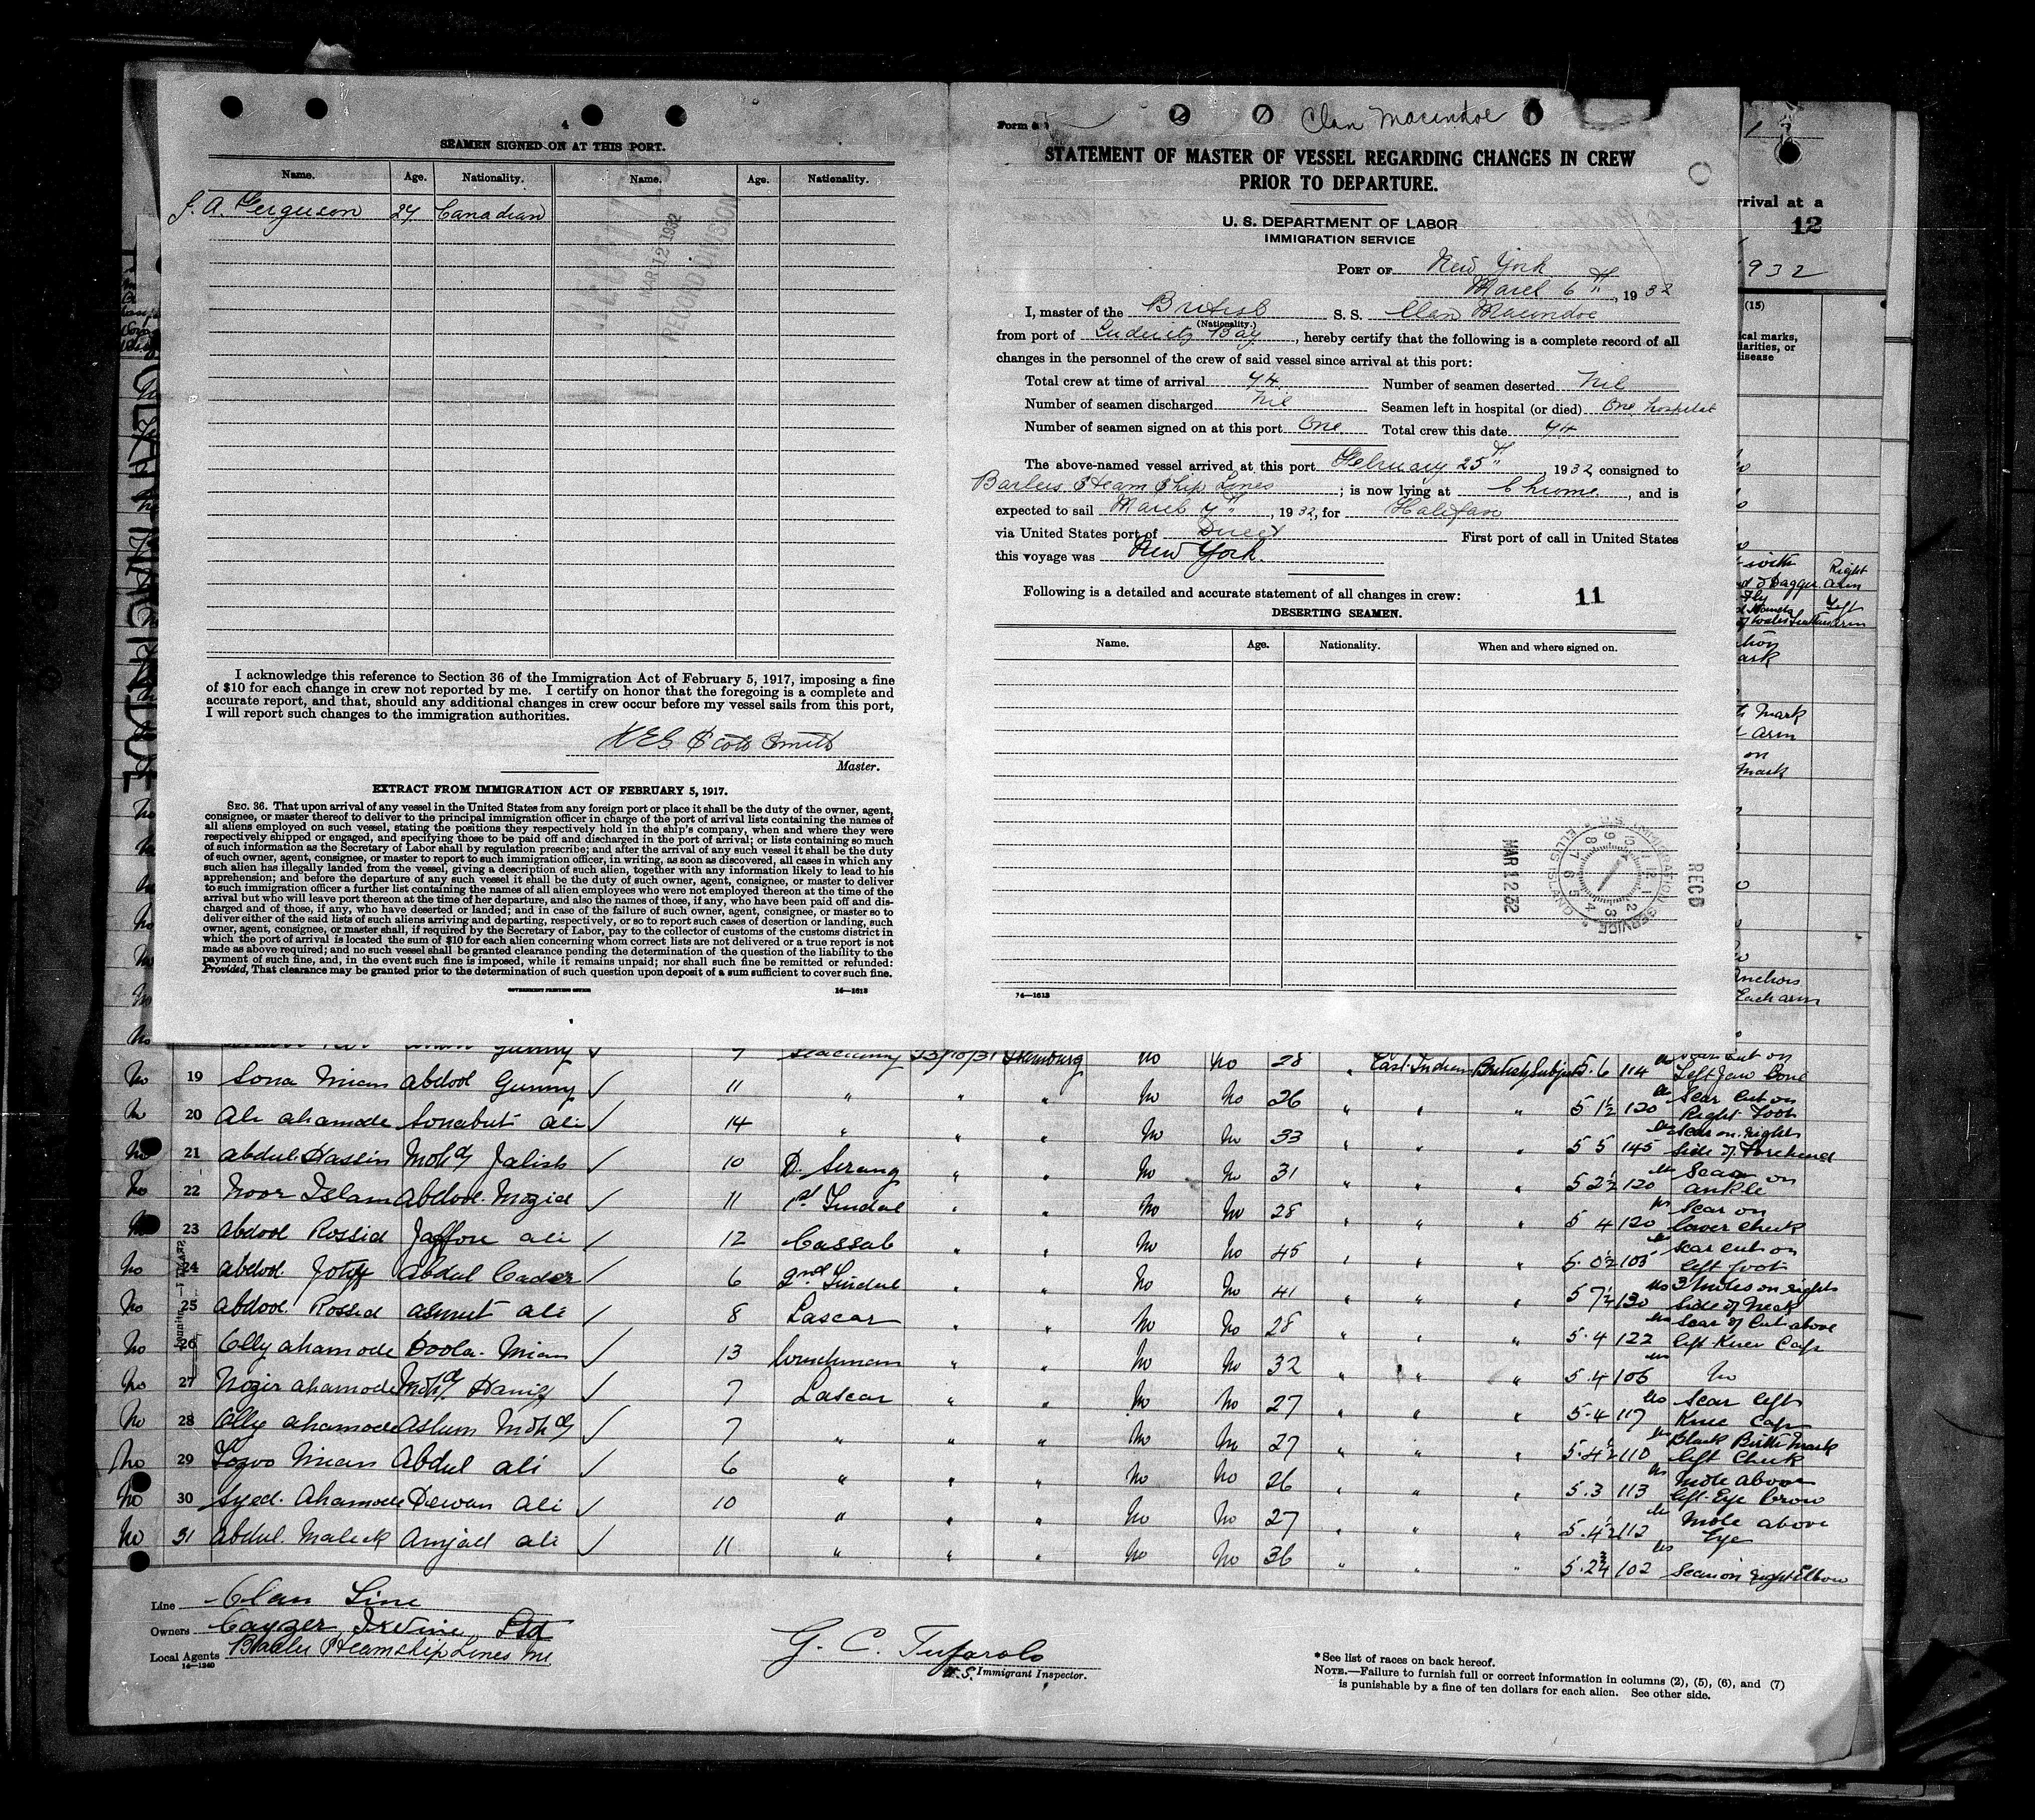 4
SEAMEN SIGNED ON AT THIS PORT.
Name. Age. Nationality. Name. Age. Nationality.
J. A. Ferguson 24 Canadian
MAR 12 1932
RECORD DIVISION
I acknowledge this reference to Section 36 of the Immigration Act of February 5, 1917, imposing a fine
of $10 for each change in crew not reported by me. I certify on honor that the foregoing is a complete and
accurate report, and that, should any additional changes in crew occur before my vessel sails from this port,
I will report such changes to the immigration authorities.
Scott Smith
Master.
EXTRACT FROM IMMIGRATION ACT OF FEBRUARY 5, 1917.
SEC. 36. That upon arrival of any vessel in the United States from any foreign port or place it shall be the duty of the owner, agent,
consignee, or master thereof to deliver to the principal immigration officer in charge of the port of arrival lists containing the names of
all aliens employed on such vessel, stating the positions they respectively hold in the ship's company, when and where they were
respectively shipped or engaged, and specifying those to be paid off and discharged in the port of arrival; or lists containing so much
of such information as the Secretary of Labor shall by regulation prescribe; and after the arrival of any such vessel it shall be the duty
of such owner, agent, consignee, or master to report to such immigration officer, in writing, as soon as discovered, all cases in which any
such alien has illegally landed from the vessel, giving a description of such alien, together with any information likely to lead to his
apprehension; and before the departure of any such vessel it shall be the duty of such owner, agent, consignee, or master to deliver
to such immigration officer a further list containing the names of all alien employees who were not employed thereon at the time of the
arrival but who will leave port thereon at the time of her departure, and also the names of those, if any, who have been paid off and dis-
charged and of those, if any, who have deserted or landed; and in case of the failure of such owner, agent, consignee, or master so to
deliver either of the said lists of such aliens arriving and departing, respectively, or so to report such cases of desertion or landing, such
owner, agent, consignee, or master shall, if required by the Secretary of Labor, pay to the collector of customs of the customs district in
which the port of arrival is located the sum of $10 for each alien concerning whom correct lists are not delivered or a true report is not
made as above required; and no such vessel shall be granted clearance pending the determination of the question of the liability to the
payment of such fine, and, in the event such fine is imposed, while it remains unpaid; nor shall such fine be remitted or refunded:
Provided, That clearance may be granted prior to the determination of such question upon deposit of a sum sufficient to cover such fine.
GOVERNMENT PRINTING OFFICE 14—1613
Form
Clan Macindoe
STATEMENT OF MASTER OF VESSEL REGARDING CHANGES IN CREW
PRIOR TO DEPARTURE.
U. S. DEPARTMENT OF LABOR
IMMIGRATION SERVICE
PORT OF New York
March 6th, 1932
I, master of the British S. S. Clan Macindoe
(Nationality.)
from port of Luderitz Bay, hereby certify that the following is a complete record of all
changes in the personnel of the crew of said vessel since arrival at this port:
Total crew at time of arrival 74. Number of seamen deserted Nil
Number of seamen discharged Nil Seamen left in hospital (or died) One hospital
Number of seamen signed on at this port One. Total crew this date 74
The above-named vessel arrived at this port February 25th, 1932 consigned to
Barber Steam Ship Lines; is now lying at Chrome, and is
expected to sail March 7th, 1932, for Halifax
via United States port of Direct First port of call in United States
this voyage was New York.
Following is a detailed and accurate statement of all changes in crew: 11
DESERTING SEAMEN.
Name. Age. Nationality. When and where signed on.
MAR 12 32
REC'D
IMMIGRATION SERVICE ELLIS ISLAND
14—1613
rrival at a
12
932
(15)
cal marks,
liarities, or
disease
with Right
& Dagger arm
Left
Mark
arm
on
mark
Anchors
Each arm
No Gunny ✓ 9 Seacunny 23/10/31 Hamburg No No 28 " East Indian British Subject 5.6 114 Scar cut on Left Jaw Bone
No 19 Sona Mian Abdool Gunny ✓ 11 " " " No No 26 " " " 5 1½ 120 Scar cut on Right Foot
No 20 Ali ahamode Sonabut ali ✓ 14 " " " No No 33 " " " 5 5 145 Scar on right side of Forehead
No 21 abdul Hassin Mohd Jalish ✓ 10 D. Serang " " No No 31 " " " 5 2½ 120 Scar on ankle
No 22 Noor Islam Abdool Mozid ✓ 11 1st Tindal " " No No 28 " " " 5 4 120 Scar on lower cheek
No 23 abdool Rossid Jaffore ali ✓ 12 Cassab " " No No 45 " " " 5.0½ 103 Scar cut on left foot
No 24 abdool Abdul Cader ✓ 6 2nd Tindal " " No No 41 " " " 5 7½ 130 3 Moles on right side of Neck
No 25 abdool Rossid asmut ali ✓ 8 Lascar " " No No 28 " " " 5.4 122 Scar of Cut above left Knee Cap
No 26 Olly ahamode Doola Mian ✓ 13 Winchman " " No No 32 " " " 5.4 106 No
No 27 Nozir ahamode Mohd Hanif ✓ 7 Lascar " " No No 27 " " " 5.4 117 Scar left Knee Cap
No 28 Olly ahamode Aslum Mohd ✓ 7 " " " No No 27 " " " 5.4½ 110 Black Birth Mark left Cheek
No 29 Mian Abdul ali ✓ 6 " " " No No 26 " " " 5.3 113 Mole above left Eye brow
No 30 Syed Ahamode Dewan Ali ✓ 10 " " " No No 27 " " " 5.4½ 112 Mole above Eye
No 31 abdul Maleck Amjad ali ✓ 11 " " " No No 36 " " " 5.2¾ 102 Scar on right Elbow
Line Clan Line
Owners Cayzer Irvine Ltd
Local Agents Barber Steamship Lines Inc
14—1240
G. C. Tufarolo
U. S. Immigrant Inspector.
* See list of races on back hereof.
NOTE.—Failure to furnish full or correct information in columns (2), (5), (6), and (7)
is punishable by a fine of ten dollars for each alien. See other side.